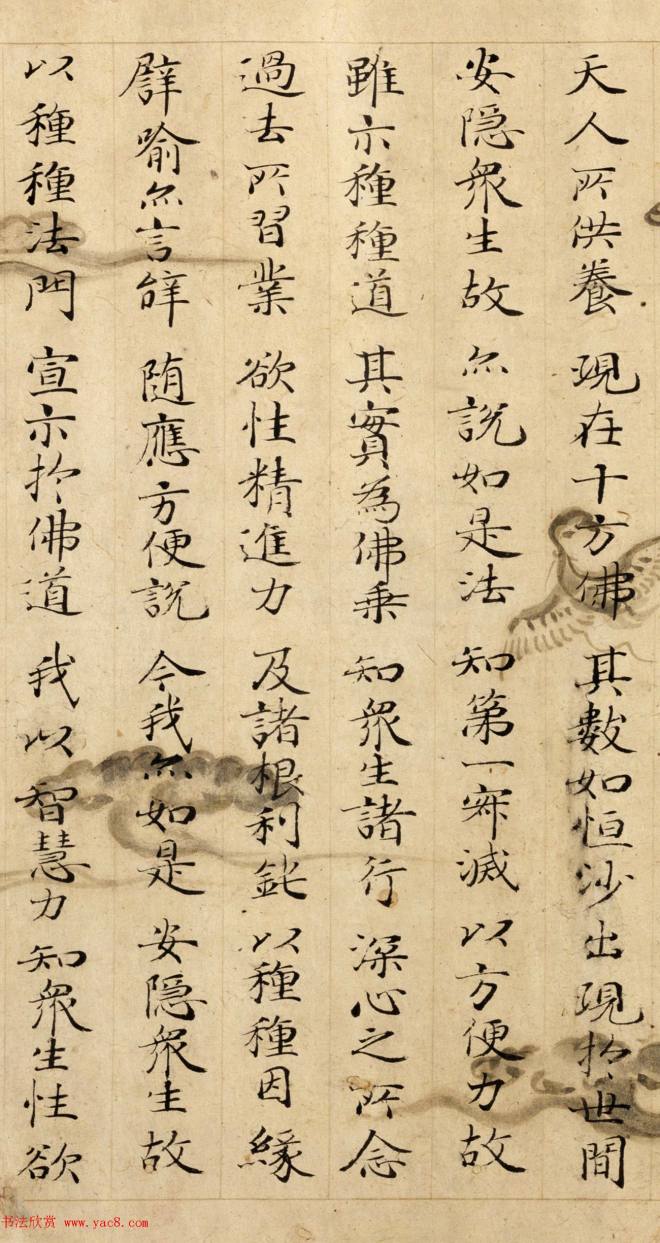 天人所供養 現在十方佛 其數如恒沙 出現於世間
安隱衆生故 尒說如是法 知第一寂滅 以方便力故
雖示種種道 其實為佛乘 知衆生諸行 深心之所念
過去所習業 欲性精進力 及諸根利鈍 以種種因緣
辟喻尒言辞 随應方便說 今我尒如是 安隱衆生故
以種種法門 宣示於佛道 我以智慧力 知衆生性欲
书法欣赏 www.yac8.com